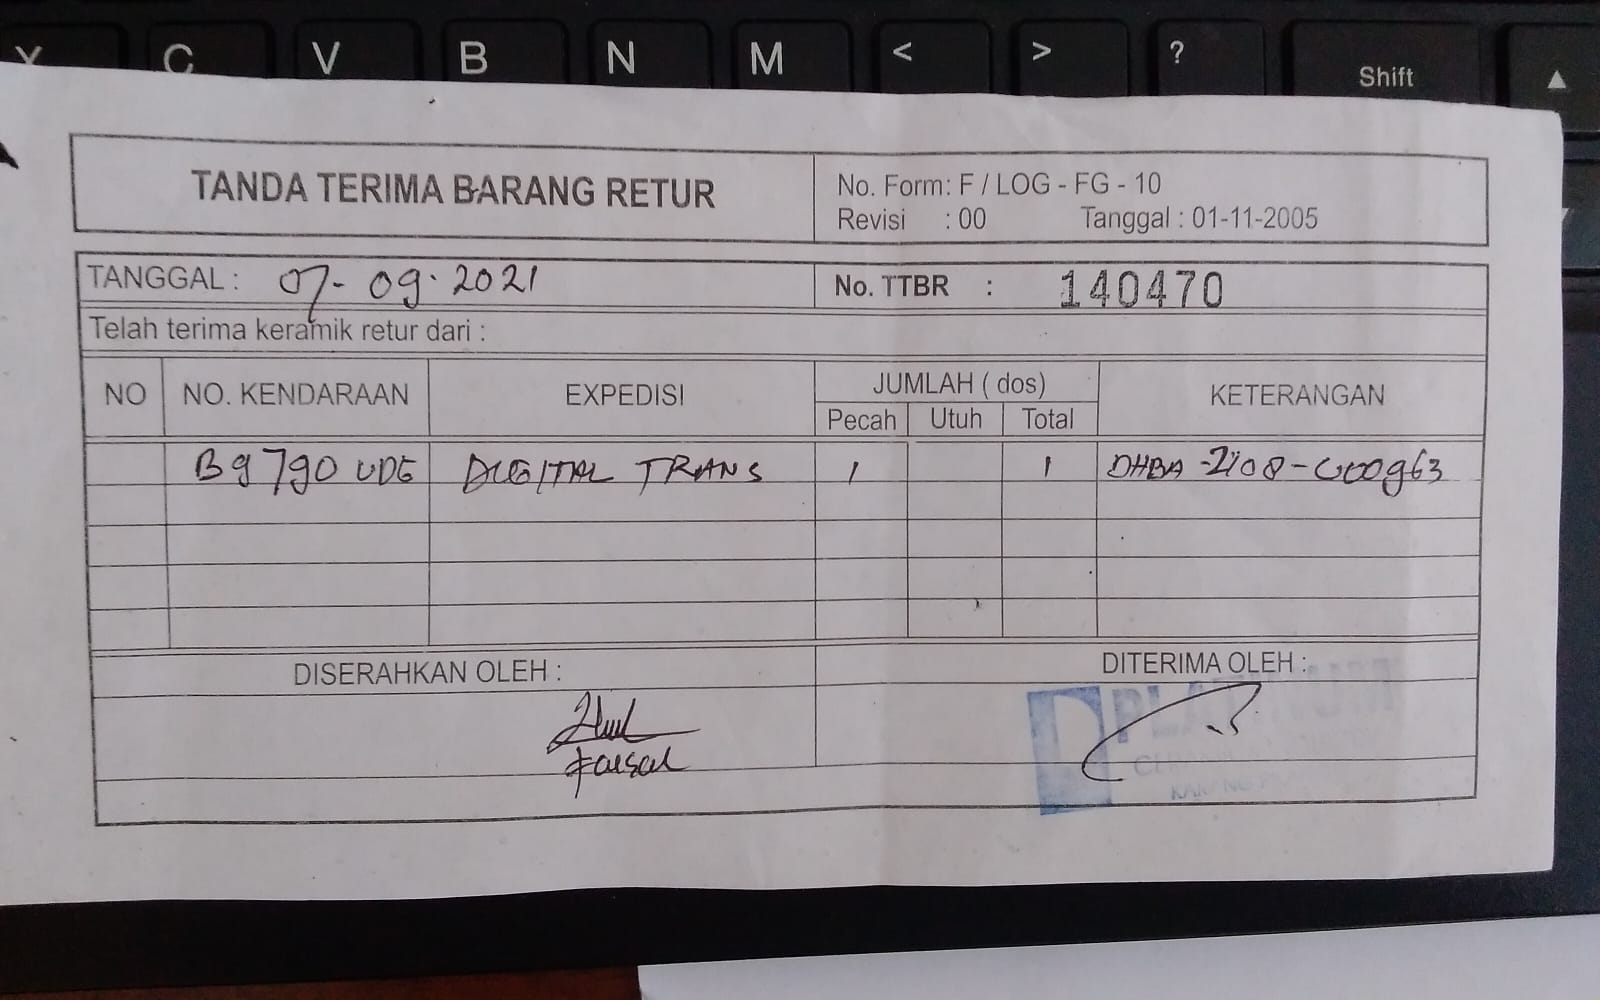 X C V B N M < > ? Shift ▲
TANDA TERIMA BARANG RETUR
No. Form: F / LOG - FG - 10
Revisi : 00 Tanggal : 01-11-2005
TANGGAL : 07-09-2021
No. TTBR : 140470
Telah terima keramik retur dari :
NO NO. KENDARAAN EXPEDISI JUMLAH ( dos) KETERANGAN
Pecah Utuh Total
B 9790 UDE DIGITAL TRANS 1 1 DHBA-2108-000963
DISERAHKAN OLEH : DITERIMA OLEH :
Faisal
PLATINUM